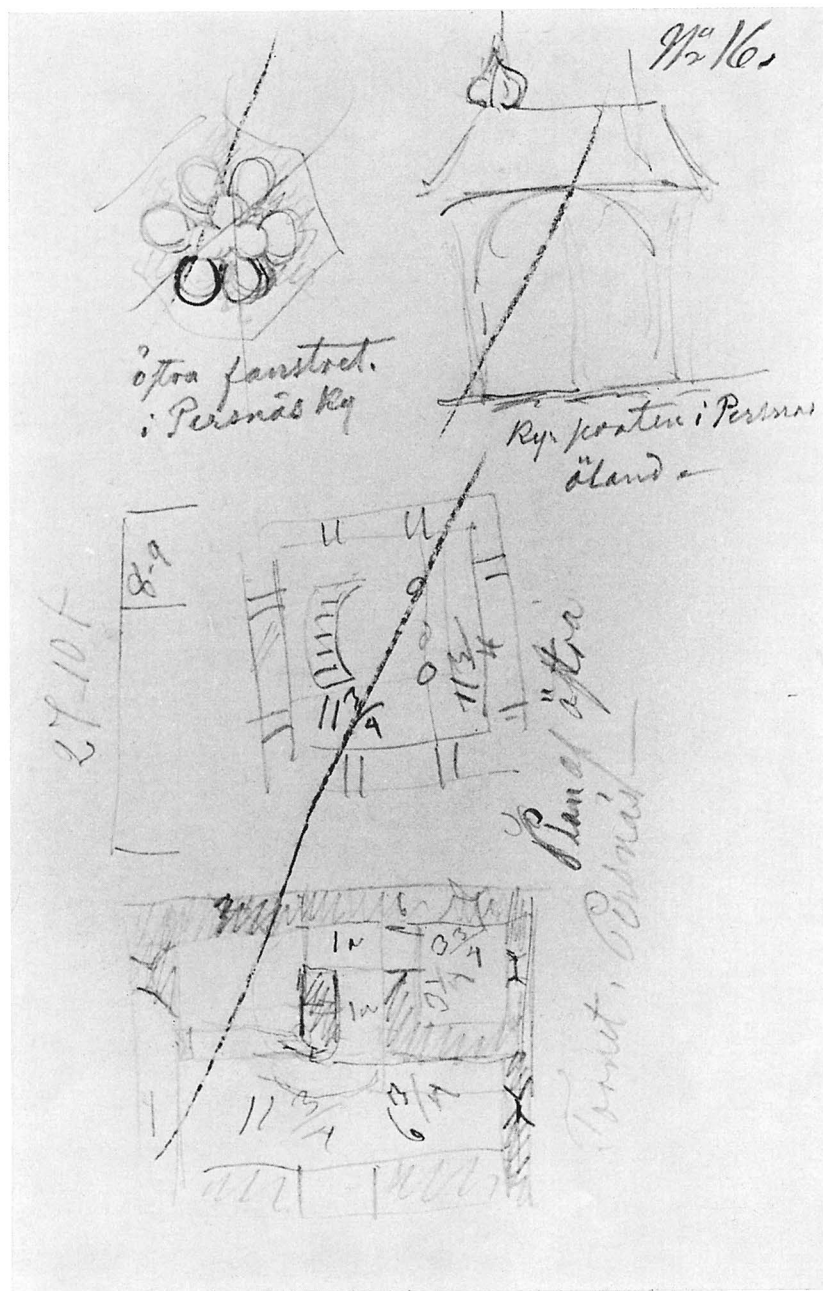 No 16.
östra fenstret.
i Persnäs Ky
Ky. porten i Persnäs
öland
8-9
27-10 f
11 3/4
11 3/4
Plan af östra
Tornet i Persnäs
1 n
3 3/4
1 n
11 3/4
6 3/4